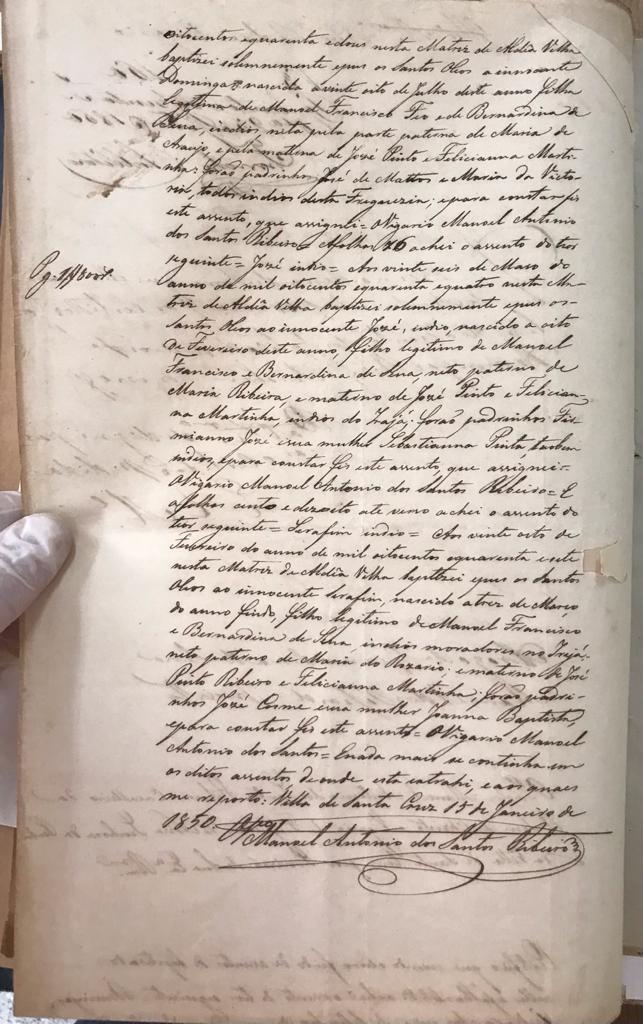 oitocentos equarenta edous nesta Matriz de Aldêa Velha
baptizei solemnemente epus os Santos Oleos a innocente
Domingas nascida a vinte oito de Julho deste anno filha
legitima de Manoel Francisco Feo e de Bernardina de
Sena, indios, neta pela parte paterna de Maria de
Araujo, e pela materna de José Pinto e Felicianna Marti-
nha: forão padrinhos José de Mattos e Maria da Victo-
ria, todos indios desta Freguezia; epara constar fis
este assento, que assignei = O Vigario Manoel Antonio
dos Santos Ribeiro = Afolhas 26 achei o assento do teor
seguinte = José indio = Aos vinte seis de Maio do
anno de mil oitocentos equarenta equatro nesta Ma-
triz de Aldêa Velha baptizei solemnemente epus os
Santos Oleos ao innocente José, indio, nascido a oito
de Fevereiro deste anno, filho legitimo de Manoel
Francisco e Bernardina de Sena, neto paterno de
Maria Ribeira, e materno de José Pinto e Felician-
na Martinha, indios do Irajá: forão padrinhos Fir-
mianno José esua mulher Sebastianna Pinta, tambem
indios, epara constar fis este assento, que assignei =
O Vigario Manoel Antonio dos Santos Ribeiro = E
afolhas cento e dezoito ate verso achei o assento do
teor seguinte = Serafim indio = Aos vinte oito de
Fevereiro do anno de mil oitocentos equarenta esete
nesta Matriz de Aldêa Velha baptizei epus os Santos
Oleos ao innocente Serafim, nascido a trez de Março
do anno findo, filho legitimo de Manoel Francisco
e Bernardina de Sena, indios moradores no Irajá:
neto paterno de Maria do Rozario: ematerno de José
Pinto Ribeiro e Felicianna Martinha; forão padri-
nhos José Cosme esua mulher Joanna Baptista,
epara constar fis este assento = O Vigario Manoel
Antonio dos Santos = Enada mais se continha em
os ditos assentos de onde esta extrahi, eaos quaes
me reporto: Villa de Santa Cruz 15 de Janeiro de
1850
Manoel Antonio dos Santos Ribeiro